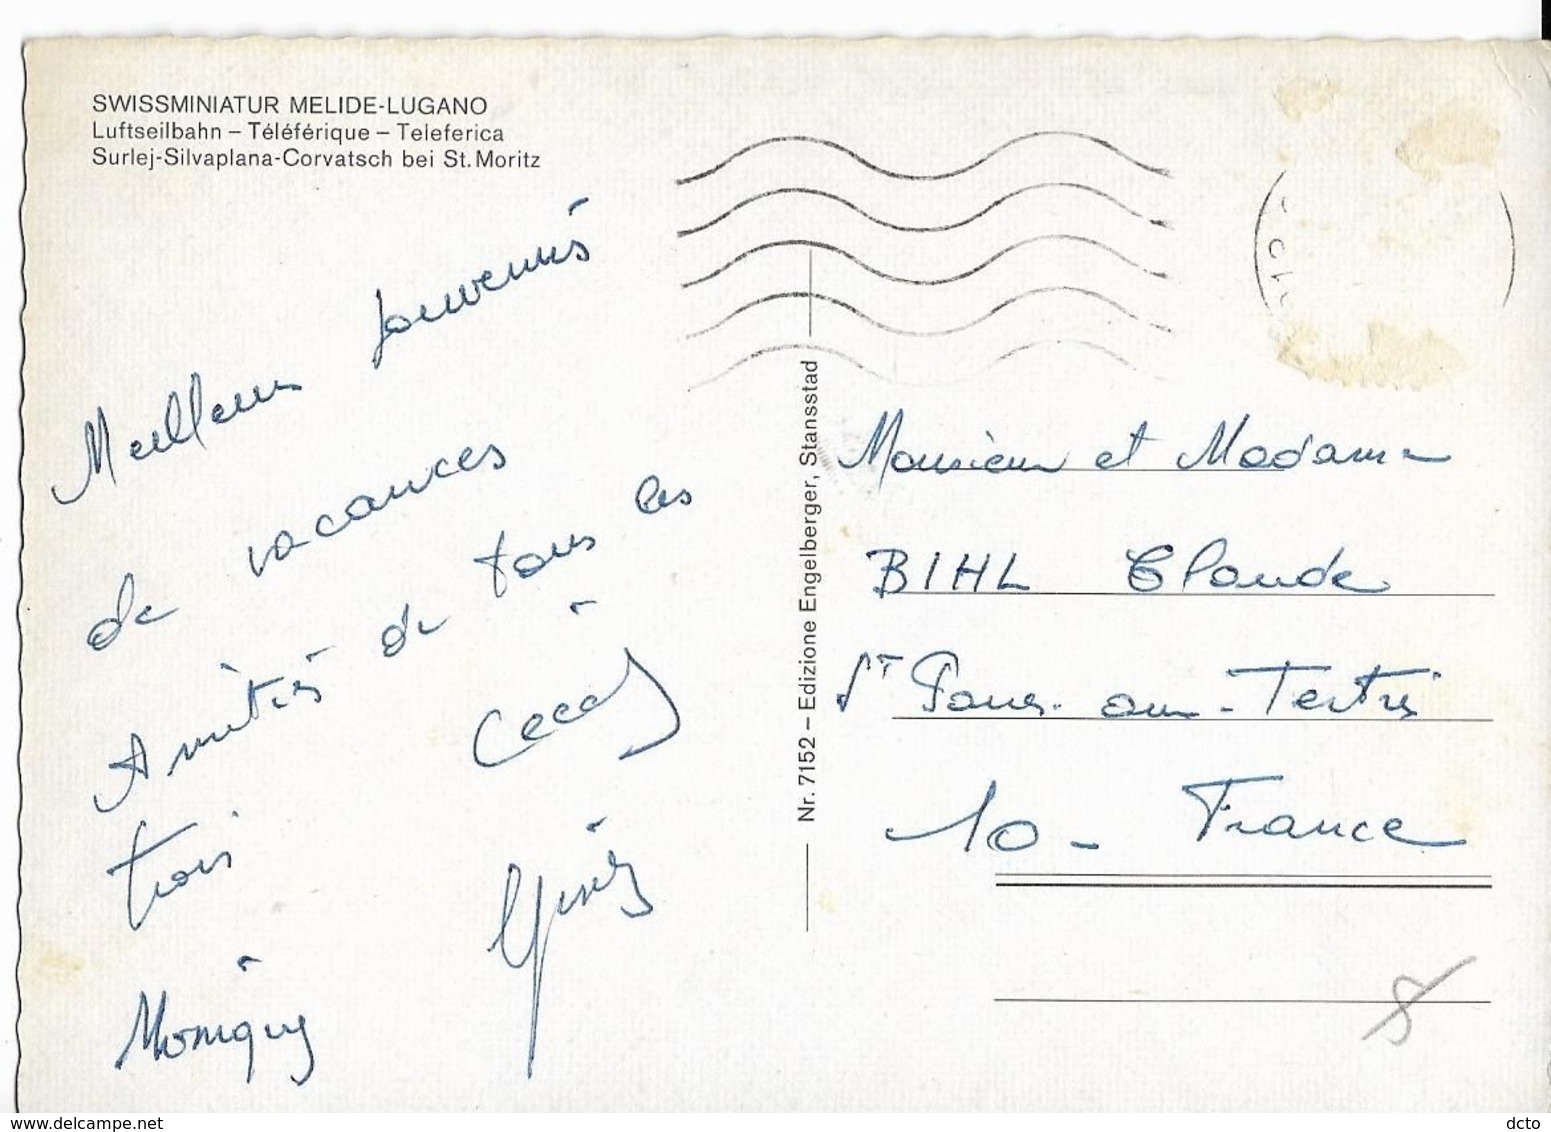 SWISSMINIATUR MELIDE-LUGANO
Luftseilbahn – Téléférique – Teleferica
Surlej-Silvaplana-Corvatsch bei St. Moritz
Meilleurs souvenirs
de vacances
Amitiés de tous les
trois
Monique
Nr. 7152 – Edizione Engelberger, Stansstad
Monsieur et Madame
BIHL Claude
St Pares-aux-Tertres
10 - France
www.delcampe.net
dcto